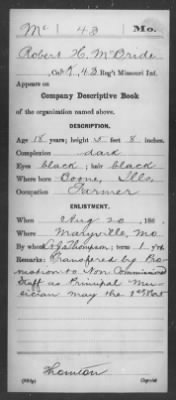 Mc 43 Mo.
Robert H. McBride
Co. K, 43 Reg't Missouri Inf.
Appears on
Company Descriptive Book
of the organization named above.
DESCRIPTION.
Age 18 years; height 5 feet 8 inches.
Complexion dark
Eyes black; hair black
Where born Boone, Ills.
Occupation Farmer
ENLISTMENT.
When Aug 20, 186 .
Where Maryville, Mo.
By whom Thompson; term 1 y'rs.
Remarks: Transfered by Pro
motion to Non Commissioned
Staff as Principal Mu
sician may the 1st
Thornton
Copyist.